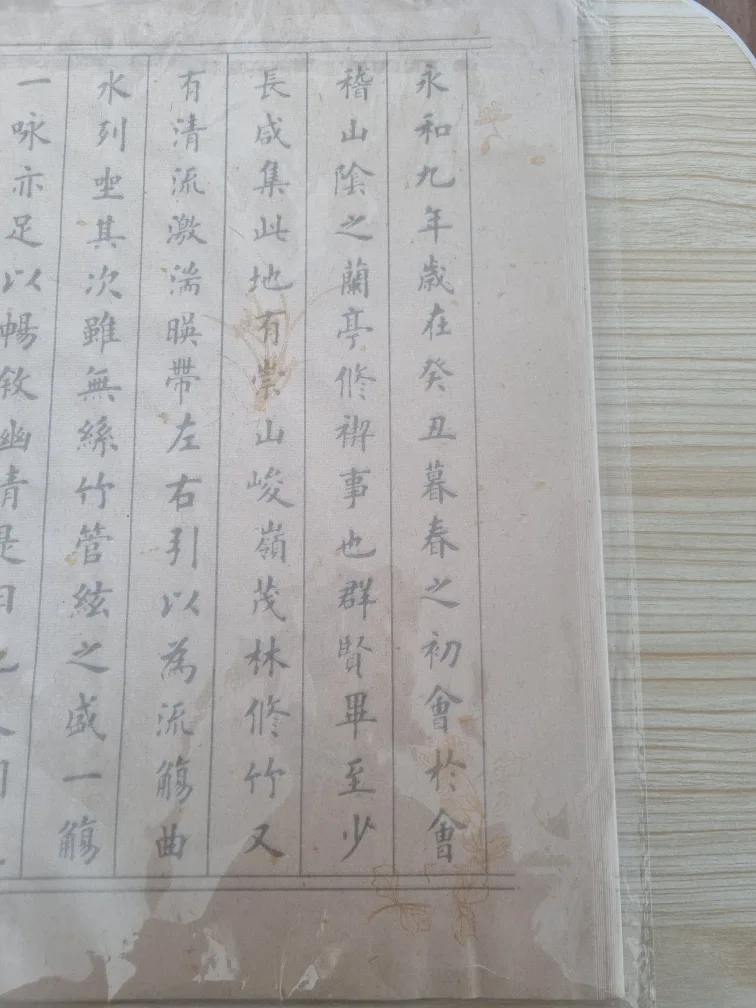 永和九年歲在癸丑暮春之初會於會
稽山陰之蘭亭修禊事也群賢畢至少
長咸集此地有崇山峻嶺茂林修竹又
有清流激湍暎帶左右引以為流觴曲
水列坐其次雖無絲竹管絃之盛一觴
一咏亦足以暢敘幽青是日